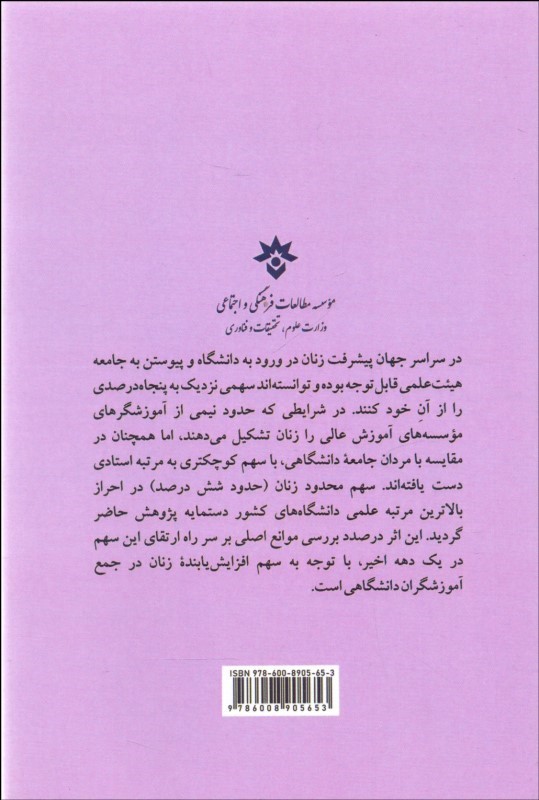 مؤسسه مطالعات فرهنگی و اجتماعی
وزارت علوم، تحقیقات و فناوری
در سراسر جهان پیشرفت زنان در ورود به دانشگاه و پیوستن به جامعه
هیئت‌علمی قابل توجه بوده و توانسته‌اند سهمی نزدیک به پنجاه‌درصدی
را از آنِ خود کنند. در شرایطی که حدود نیمی از آموزشگرهای
مؤسسه‌های آموزش عالی را زنان تشکیل می‌دهند، اما همچنان در
مقایسه با مردان جامعهٔ دانشگاهی، با سهم کوچکتری به مرتبه استادی
دست یافته‌اند. سهم محدود زنان (حدود شش درصد) در احراز
بالاترین مرتبه علمی دانشگاه‌های کشور دستمایه پژوهش حاضر
گردید. این اثر درصدد بررسی موانع اصلی بر سر راه ارتقای این سهم
در یک دهه اخیر، با توجه به سهم افزایش‌یابندهٔ زنان در جمع
آموزشگران دانشگاهی است.
ISBN 978-600-8905-65-3
9 786008 905653